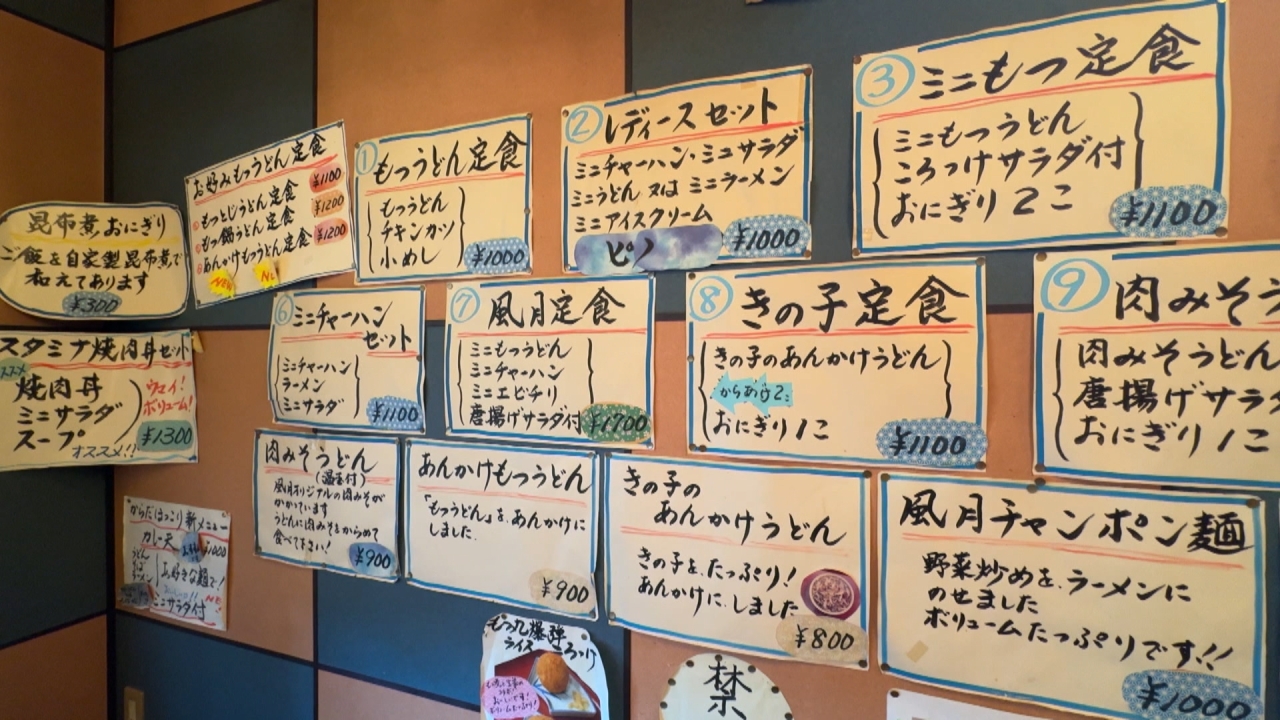 昆布煮おにぎり
ご飯を自家製昆布煮で
和えてあります
¥300
お好みもつうどん定食
もつとじうどん定食 ¥1100
もつ鍋うどん定食 ¥1200
あんかけもつうどん定食 ¥1200
NEW
① もつうどん定食
もつうどん
チキンカツ
小めし
¥1000
② レディースセット
ミニチャーハン・ミニサラダ
ミニうどん 又は ミニラーメン
ミニアイスクリーム
ピノ
¥1000
③ ミニもつ定食
ミニもつうどん
ころっけサラダ付
おにぎり2こ
¥1100
スタミナ焼肉丼セット
オススメ
焼肉丼
ミニサラダ
スープ
ウェイ!
ボリューム!
¥1300
オススメ!!
⑥ ミニチャーハン
セット
ミニチャーハン
ラーメン
ミニサラダ
¥1100
⑦ 風月定食
ミニもつうどん
ミニチャーハン
ミニエビチリ
唐揚げサラダ付
¥1700
⑧ きの子定食
きの子のあんかけうどん
からあげ2こ
おにぎり1こ
¥1100
⑨ 肉みそう
肉みそうどん
唐揚げサラ
おにぎり1こ
からだほっこり新メニュー
カレー天
¥1000
うどん
そば
ラーメン
お好きな麺で!
ミニサラダ付
肉みそうどん
(温玉付)
風月オリジナルの肉みそが
かかっています
うどんに肉みそをからめて
食べて下さい!
¥900
あんかけもつうどん
「もつうどん」を、あんかけに
しました。
¥900
きの子の
あんかけうどん
きの子を、たっぷり!
あんかけに、しました
¥800
風月チャンポン麺
野菜炒めを、ラーメンに
のせました
ボリュームたっぷりです!!
¥1000
もつ丸爆弾
ライスころっけ
禁